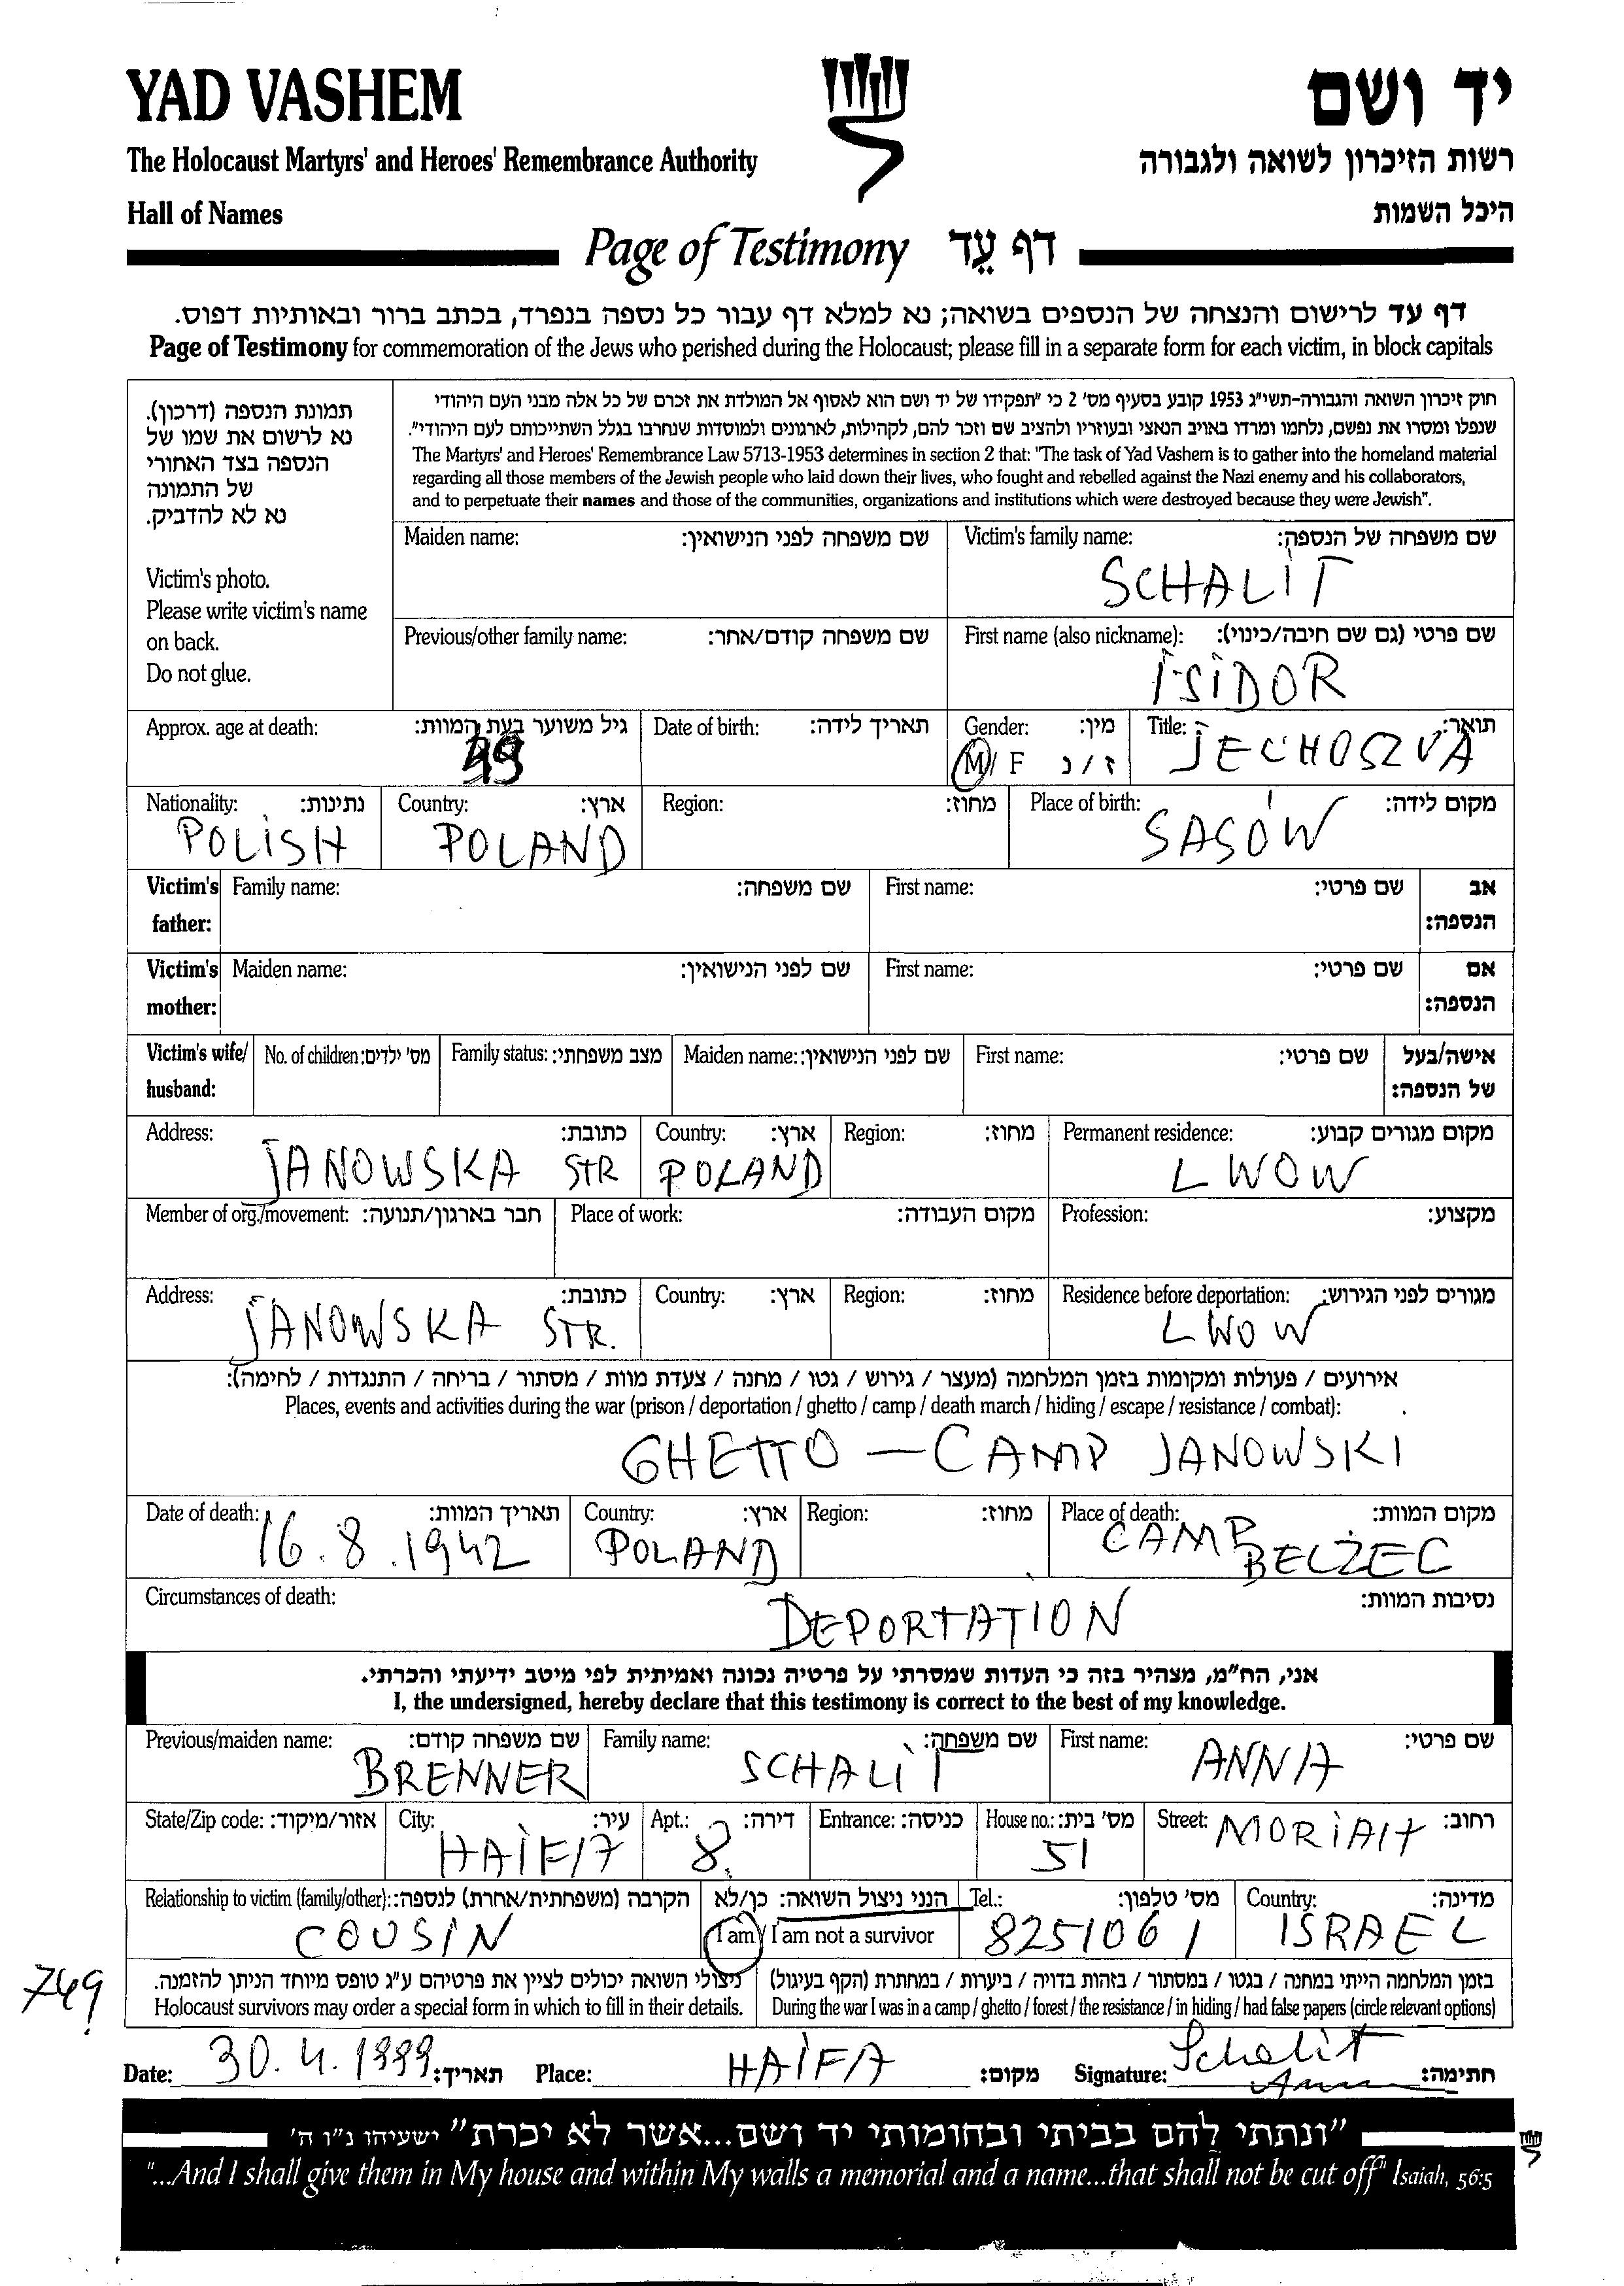 YAD VASHEM
יד ושם
The Holocaust Martyrs' and Heroes' Remembrance Authority
רשות הזיכרון לשואה ולגבורה
Hall of Names
היכל השמות
Page of Testimony דף עֵד
דף עד לרישום והנצחה של הנספים בשואה; נא למלא דף עבור כל נספה בנפרד, בכתב ברור ובאותיות דפוס.
Page of Testimony for commemoration of the Jews who perished during the Holocaust; please fill in a separate form for each victim, in block capitals
תמונת הנספה (דרכון).
נא לרשום את שמו של
הנספה בצד האחורי
של התמונה
נא לא להדביק.
Victim's photo.
Please write victim's name
on back.
Do not glue.
חוק זיכרון השואה והגבורה-תשי"ג 1953 קובע בסעיף מס' 2 כי "תפקידו של יד ושם הוא לאסוף אל המולדת את זכרם של כל אלה מבני העם היהודי
שנפלו ומסרו את נפשם, נלחמו ומרדו באויב הנאצי ובעוזריו ולהציב שם וזכר להם, לקהילות, לארגונים ולמוסדות שנחרבו בגלל השתייכותם לעם היהודי".
The Martyrs' and Heroes' Remembrance Law 5713-1953 determines in section 2 that: "The task of Yad Vashem is to gather into the homeland material
regarding all those members of the Jewish people who laid down their lives, who fought and rebelled against the Nazi enemy and his collaborators,
and to perpetuate their names and those of the communities, organizations and institutions which were destroyed because they were Jewish".
Maiden name: שם משפחה לפני הנישואין: Victim's family name: שם משפחה של הנספה:
SCHALIT
Previous/other family name: שם משפחה קודם/אחר: First name (also nickname): שם פרטי (גם שם חיבה/כינוי):
ISIDOR
Approx. age at death: גיל משוער בעת המוות: Date of birth: תאריך לידה: Gender: מין: Title: תואר:
M/ F ז / נ JECHOSZVA
Nationality: נתינות: Country: ארץ: Region: מחוז: Place of birth: מקום לידה:
POLISH POLAND SASÓW
Victim's Family name: שם משפחה: First name: שם פרטי: אב
father: הנספה:
Victim's Maiden name: שם לפני הנישואין: First name: שם פרטי: אם
mother: הנספה:
Victim's wife/ No. of children: מס' ילדים: Family status: מצב משפחתי: Maiden name: שם לפני הנישואין: First name: שם פרטי: אישה/בעל
husband: של הנספה:
Address: כתובת: Country: ארץ: Region: מחוז: Permanent residence: מקום מגורים קבוע:
JANOWSKA STR POLAND LWOW
Member of org./movement: חבר בארגון/תנועה: Place of work: מקום העבודה: Profession: מקצוע:
Address: כתובת: Country: ארץ: Region: מחוז: Residence before deportation: מגורים לפני הגירוש:
JANOWSKA STR. LWOW
אירועים / פעולות ומקומות בזמן המלחמה (מעצר / גירוש / גטו / מחנה / צעדת מוות / מסתור / בריחה / התנגדות / לחימה):
Places, events and activities during the war (prison / deportation / ghetto / camp / death march / hiding / escape / resistance / combat):
GHETTO — CAMP JANOWSKI
Date of death: תאריך המוות: Country: ארץ: Region: מחוז: Place of death: מקום המוות:
16.8.1942 POLAND CAMP BELŻEC
Circumstances of death: נסיבות המוות:
DEPORTATION
אני, הח"מ, מצהיר בזה כי העדות שמסרתי על פרטיה נכונה ואמיתית לפי מיטב ידיעתי והכרתי.
I, the undersigned, hereby declare that this testimony is correct to the best of my knowledge.
Previous/maiden name: שם משפחה קודם: Family name: שם משפחה: First name: שם פרטי:
BRENNER SCHALIT ANNA
State/Zip code: אזור/מיקוד: City: עיר: Apt.: דירה: Entrance: כניסה: House no.: מס' בית: Street: רחוב:
HAIFA 8 51 MORIAH
Relationship to victim (family/other): הקרבה (משפחתית/אחרת) לנספה: הנני ניצול השואה: כן/לא Tel.: מס' טלפון: Country: מדינה:
COUSIN I am / I am not a survivor 8251061 ISRAEL
749
ניצולי השואה יכולים לציין את פרטיהם ע"ג טופס מיוחד הניתן להזמנה. בזמן המלחמה הייתי במחנה / בגטו / במסתור / בזהות בדויה / ביערות / במחתרת (הקף בעיגול)
Holocaust survivors may order a special form in which to fill in their details. During the war I was in a camp / ghetto / forest / the resistance / in hiding / had false papers (circle relevant options)
Date: 30.4.1999 תאריך: Place: HAIFA מקום: Signature: Schalit חתימה:
Anna
"ונתתי להם בביתי ובחומותי יד ושם...אשר לא יכרת" ישעיהו נ"ו ה'
"...And I shall give them in My house and within My walls a memorial and a name...that shall not be cut off" Isaiah, 56:5